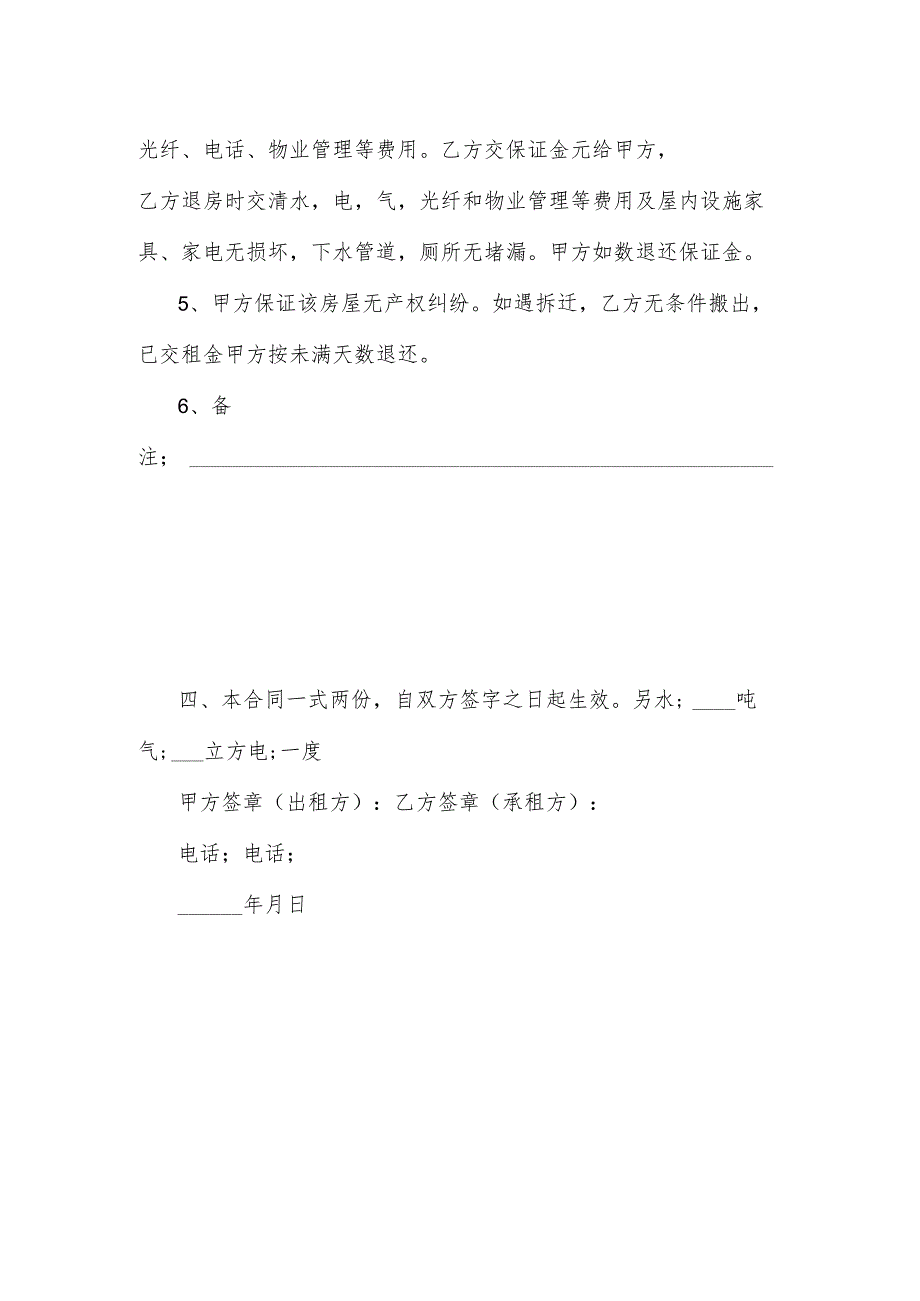 光纤、电话、物业管理等费用。乙方交保证金元给甲方，
乙方退房时交清水，电，气，光纤和物业管理等费用及屋内设施家
具、家电无损坏，下水管道，厕所无堵漏。甲方如数退还保证金。
5、甲方保证该房屋无产权纠纷。如遇拆迁，乙方无条件搬出，
已交租金甲方按未满天数退还。
6、备
注；______________________________________________________
四、本合同一式两份，自双方签字之日起生效。另水;____吨
气;___立方电;一度
甲方签章（出租方）：乙方签章（承租方）：
电话；电话；
______年月日